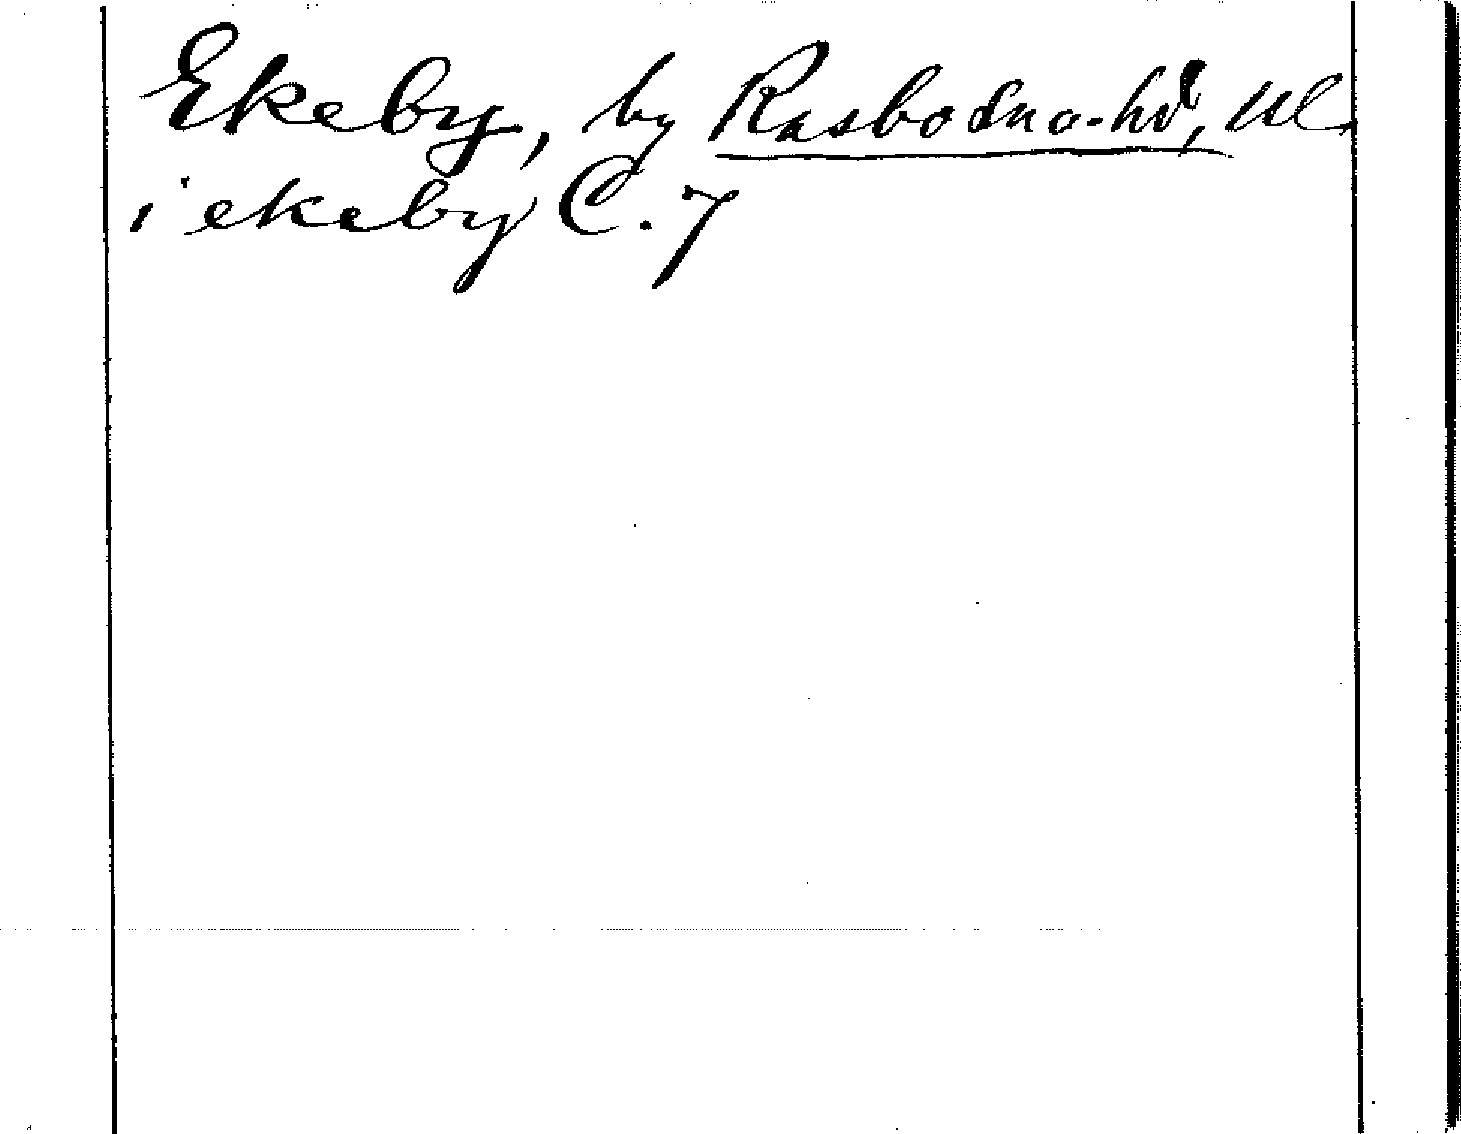 Ekeby, by Rasbo sn o. hd, Ul.
i ekeby C. 7